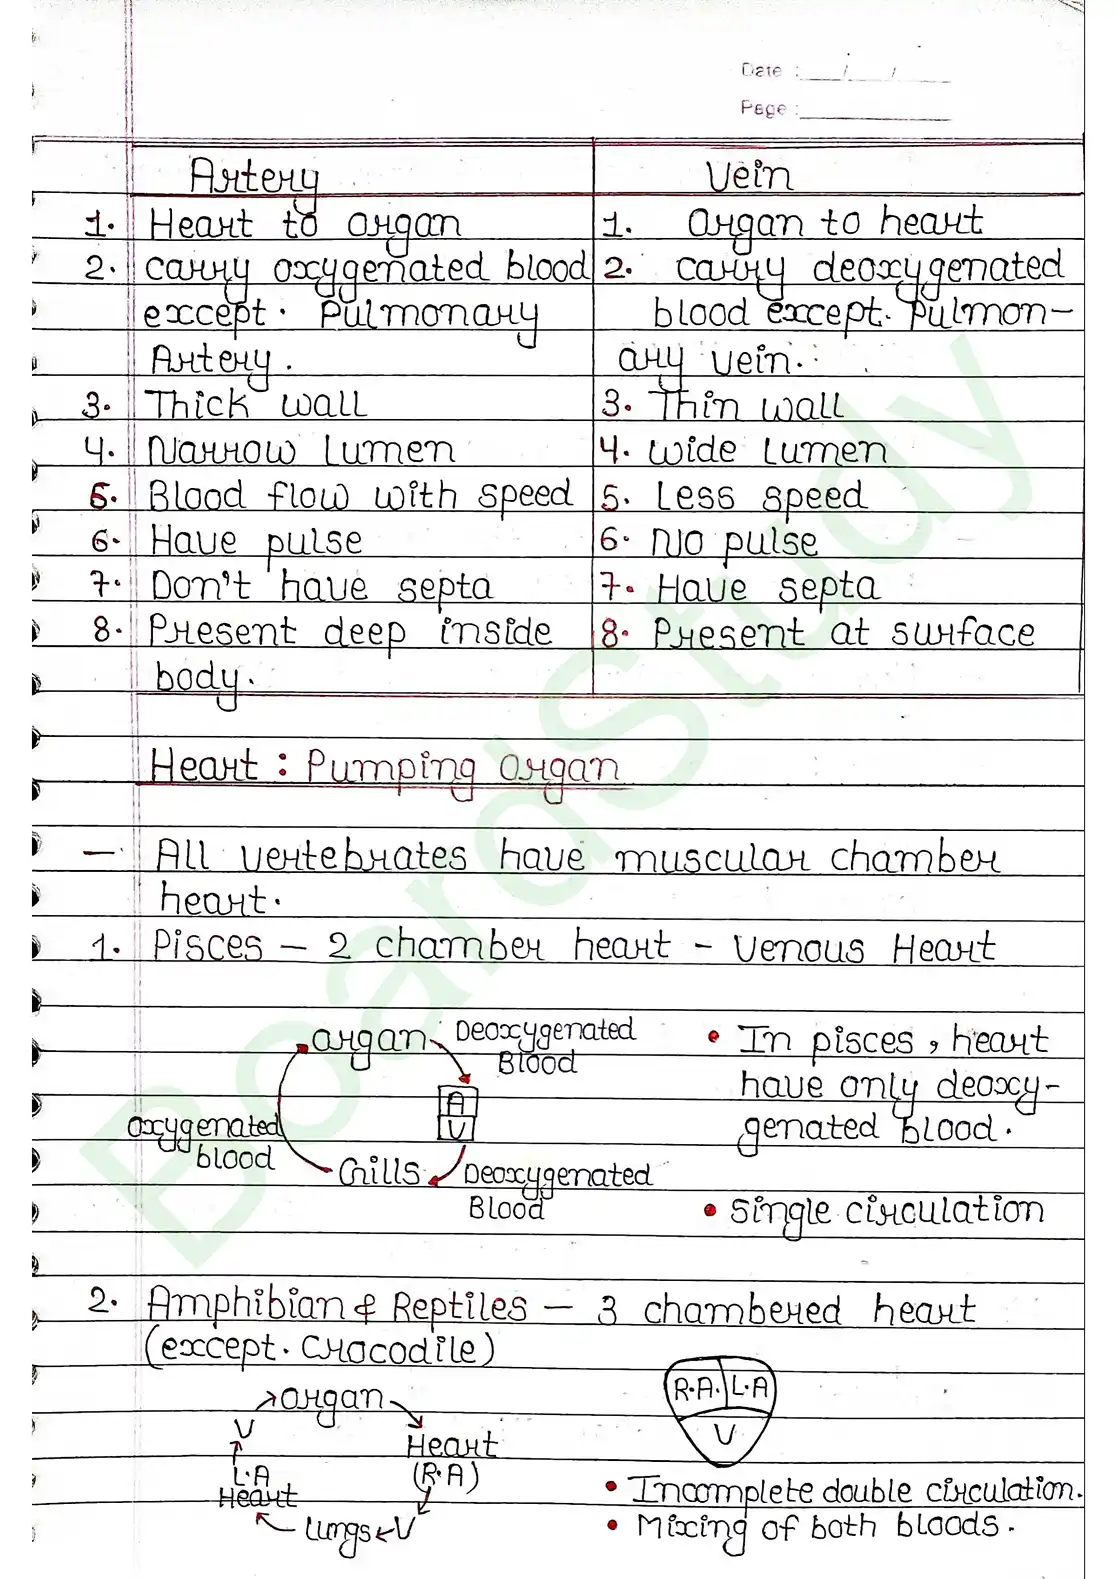 Date : __/__/__
Page :
Artery
Vein
1. Heart to organ
1. Organ to heart
2. carry oxygenated blood
2. carry deoxygenated
except. Pulmonary
blood except. Pulmon-
Artery.
ary vein.
3. Thick wall
3. Thin wall
4. Narrow lumen
4. Wide Lumen
5. Blood flow with speed
5. Less speed
6. Have pulse
6. No pulse
7. Don't have septa
7. Have septa
8. Present deep inside
8. Present at surface
body.
Heart : Pumping organ
— All vertebrates have muscular chamber
heart.
1. Pisces – 2 chamber heart - Venous Heart
organ
Deoxygenated
Blood
A
V
oxygenated
blood
Gills
Deoxygenated
Blood
• In pisces, heart
have only deoxy-
genated blood.
• Single circulation
2. Amphibian & Reptiles – 3 chambered heart
(except. Crocodile)
organ
V
Heart
(R.A)
L.A
Heart
Lungs
V
R.A. L.A
V
• Incomplete double circulation.
• Mixing of both bloods.
BoardStudy